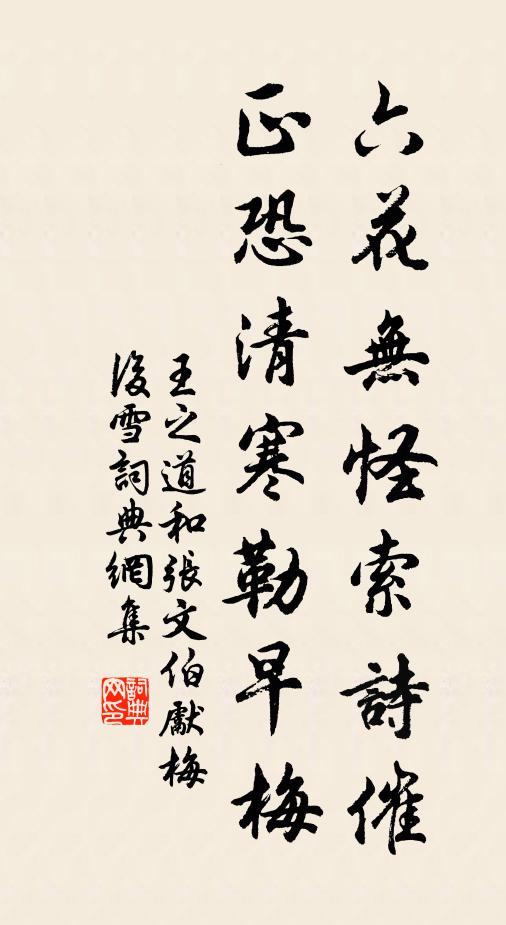 六花無怪索詩催
正恐清寒勒早梅
王之道和張文伯獻梅
後雪詞典網集
詞典
网印